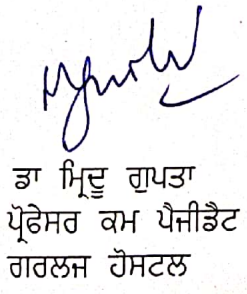 ਡਾ ਮ੍ਰਿਦੂ ਗੁਪਤਾ
ਪ੍ਰੋਫੇਸਰ ਕਮ ਪੈਜੀਡੈਟ
ਗਰਲਜ ਹੋਸਟਲ